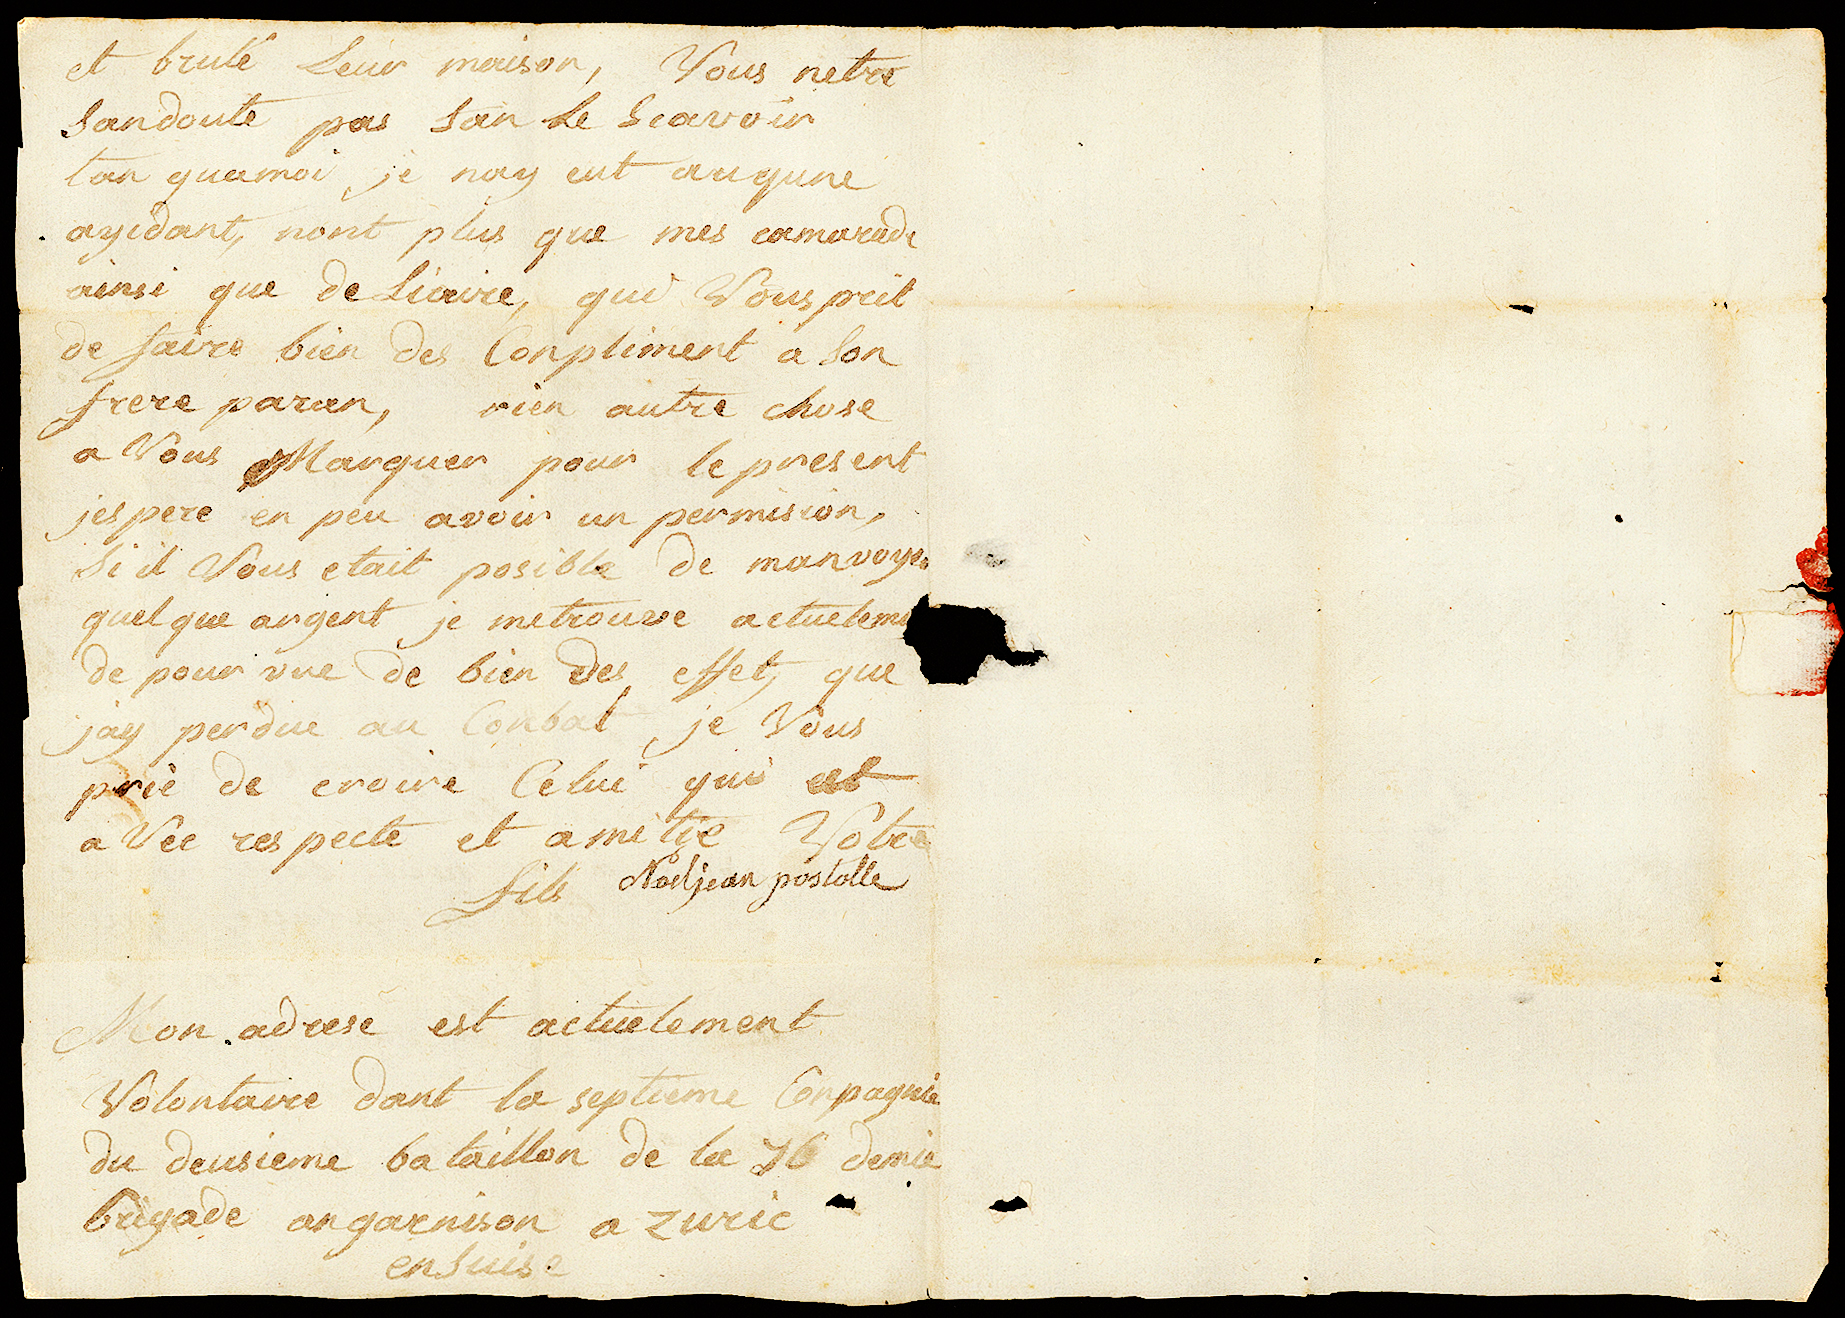 et brulé Leur maison, Vous netre
Sandoute pas San Le Scavoir
tan quamoi, je nay eut augune
ayidant, nont plus que mes camarade
ainsi que de Liaire, qui Vous prit
de faire bien des Conpliment a Son
frere paran, rien autre chose
a Vous Marquer pour le present
jespere en peu avoir un permision,
Si il Vous etait posible de manvoyer
quelque argent je metrouve actueleme
de pour vue de bien des effet, que
jay perdue au Conbat, je Vous
prie de croire Celui qui est
a Vec respecte et amitie Votre
fils Noeljean postolle
Mon adrese est actuelement
Volontaire dant la septieme Conpagnie
du deusieme bataillon de la 76 demie
brigade angarnison a zuric
en Suise